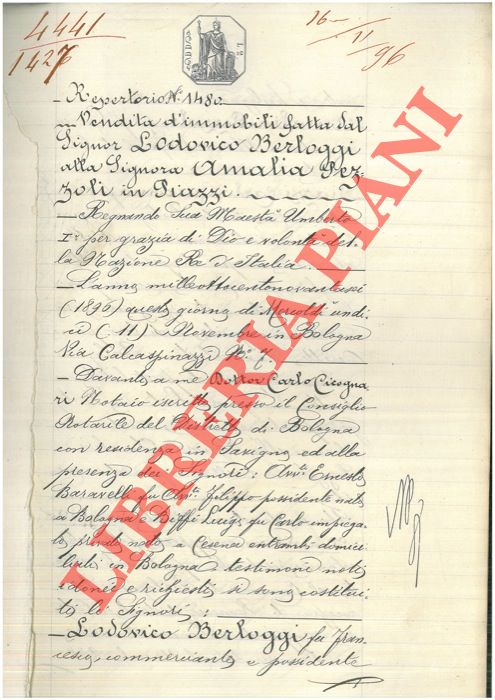 4441
1427
16 11 96
Repertorio N. 1480
Vendita d'immobili fatta dal
Signor Lodovico Berloggi
alla Signora Amalia Pez-
zoli in Piazzi
Regnando Sua Maestà Umberto
I° per grazia di Dio e volontà del-
la Nazione Re d'Italia.
L'anno milleottocentonovantasei
(1896) questo giorno di Mercoldì undi-
ci (11) Novembre in Bologna
Via Calcaspinazzi N. 7.
Davanti a me Dottor Carlo Cicogna
ri Notaio iscritto presso il Consiglio
Notarile del Distretto di Bologna
con residenza in Savigno ed alla
presenza dei Signori: Avv. Ernesto
Baravelli fu Avv. Filippo possidente nato
a Bologna e Biffi Luigi fu Carlo impiega-
to privato nato a Cesena entrambi domici-
liati in Bologna testimoni noti
idonei e richiesti si sono costitui-
ti li Signori:
Lodovico Berloggi fu Fran-
cesco, commerciante e possidente
LIBRERIA PIANI